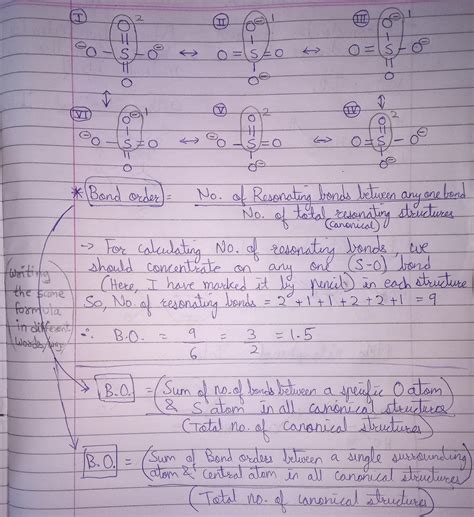 I O 2 II O⊖ 1 III O⊖ 1
⊖O - S - O⊖ ↔ O = S = O ↔ O = S - O⊖
O O⊖ O
VI O⊖ 1 V O 2 IV O 2
⊖O - S = O ↔ ⊖O - S = O ↔ O = S - O⊖
O O⊖ O⊖
* Bond order = No. of Resonating bonds between any one bond
No. of total resonating structures
(canonical)
→ For calculating No. of resonating bonds, we
should concentrate on any one (S-O) bond
(Here, I have marked it by pencil) in each structure
So, No. of resonating bonds = 2+1+1+2+2+1 = 9
∴ B.O. = 9/6 = 3/2 = 1.5
Writing
the same
formula
in different
words,
B.O. = (Sum of no. of bonds between a specific O atom
& S atom in all canonical structures)
(Total no. of canonical structures)
B.O. = (Sum of Bond orders between a single surrounding
atom & central atom in all canonical structures)
(Total no. of canonical structures)